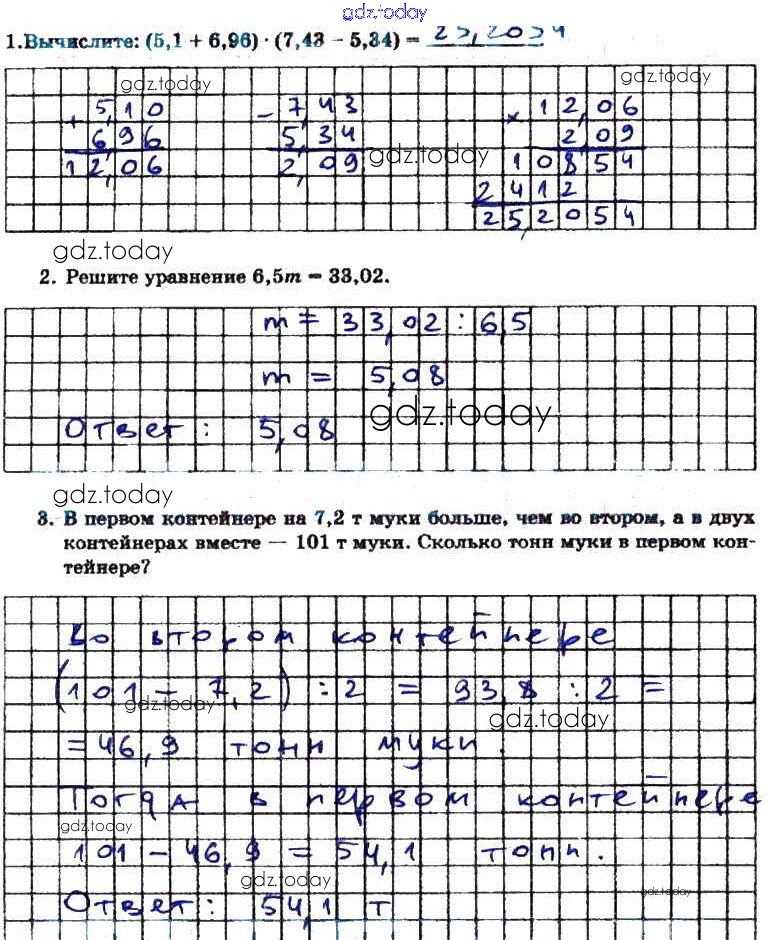 gdz.today
1. Вычислите: (5,1 + 6,96) · (7,43 − 5,34) = 25,2054
gdz.today
gdz.today
+ 5,10
6,96
12,06
− 7,43
5,34
2,09
gdz.today
× 12,06
2,09
10854
2412
25,2054
gdz.today
2. Решите уравнение 6,5m = 33,02.
m = 33,02 : 6,5
m = 5,08
Ответ: 5,08
gdz.today
gdz.today
3. В первом контейнере на 7,2 т муки больше, чем во втором, а в двух
контейнерах вместе — 101 т муки. Сколько тонн муки в первом кон-
тейнере?
Во втором контейнере
(101 − 7,2) : 2 = 93,8 : 2 =
gdz.today
gdz.today
= 46,9 тонн муки.
Тогда в первом контейнере
gdz.today
101 − 46,9 = 54,1 тонн.
gdz.today
gdz.today
Ответ: 54,1 т